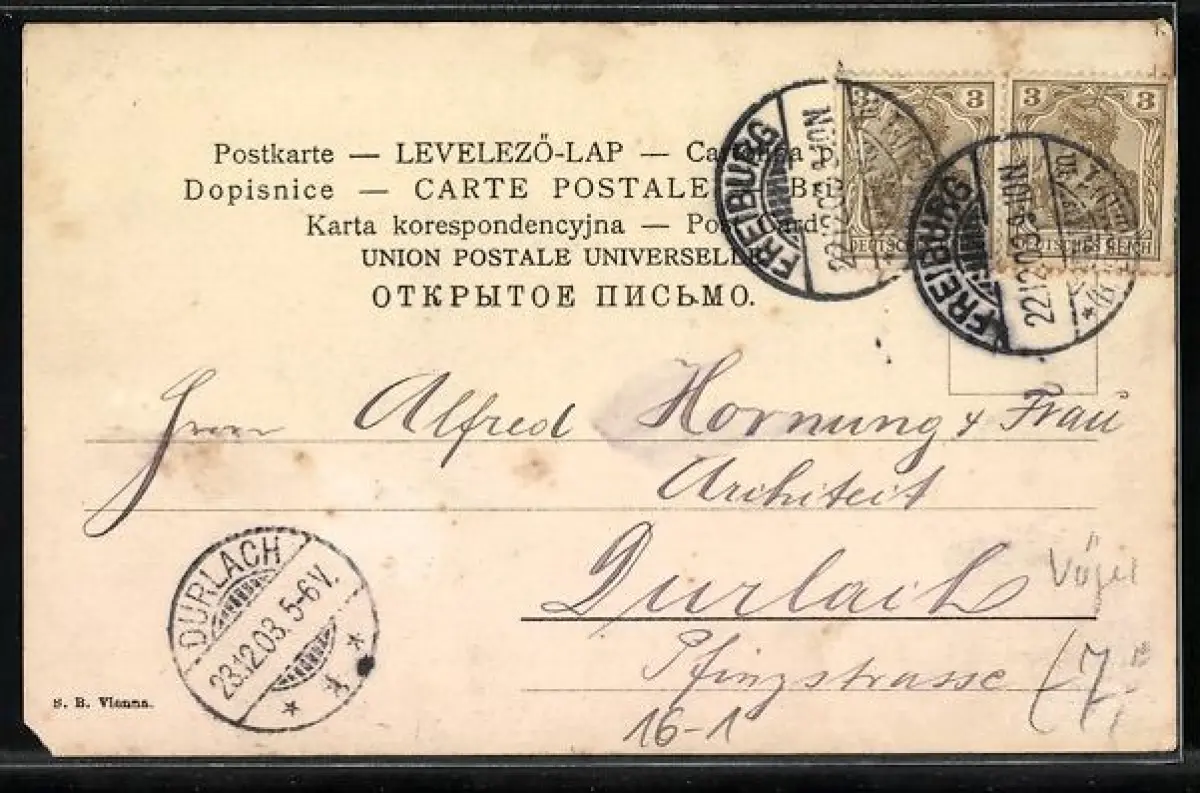 Postkarte — LEVELEZŐ-LAP —
Dopisnice — CARTE POSTALE
Karta korespondencyjna —
UNION POSTALE UNIVERSELLE
ОТКРЫТОЕ ПИСЬМО.
3 3
3 3
DEUTSCHES REICH
FREIBURG
22.12.03.
FREIBURG
22.12.03.
Herrn Alfred Hornung & Frau
Architect
Durlach
Vögel
Pfinzstrasse
(7,
16-1
DURLACH
23.12.03. 5-6V.
S. B. Vienna.